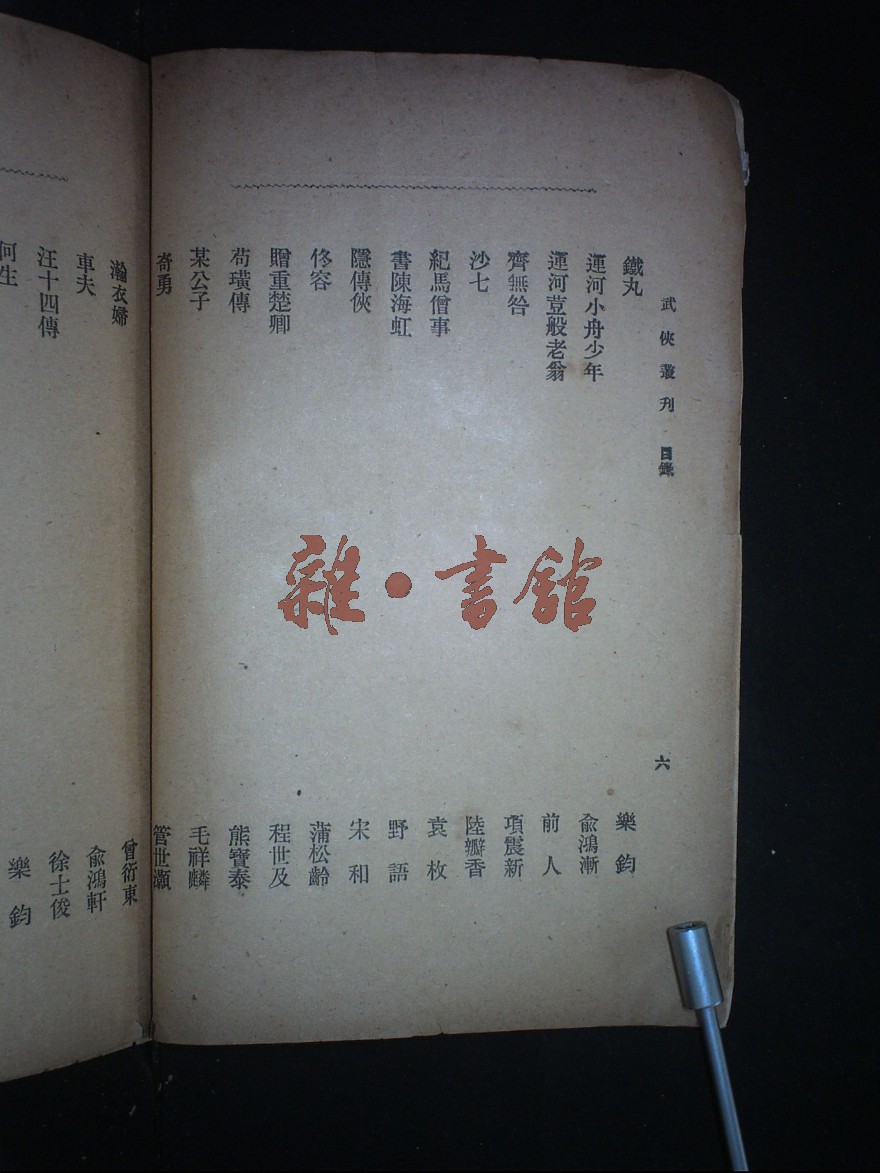 武俠叢刊 目錄 六
鐵丸 樂鈞
運河小舟少年 俞鴻漸
運河荳般老翁 前人
齊無咎 項震新
沙七 陸瓣香
紀馬僧事 袁枚
書陳海虹 野語
隱傳俠 宋和
佟容 蒲松齡
贈重楚卿 程世及
荀璜傳 熊寶泰
某公子 毛祥麟
奇勇 管世灝
瀚衣婦 曾衍東
車夫 俞鴻軒
汪十四傳 徐士俊
何生 樂鈞
雜·書館